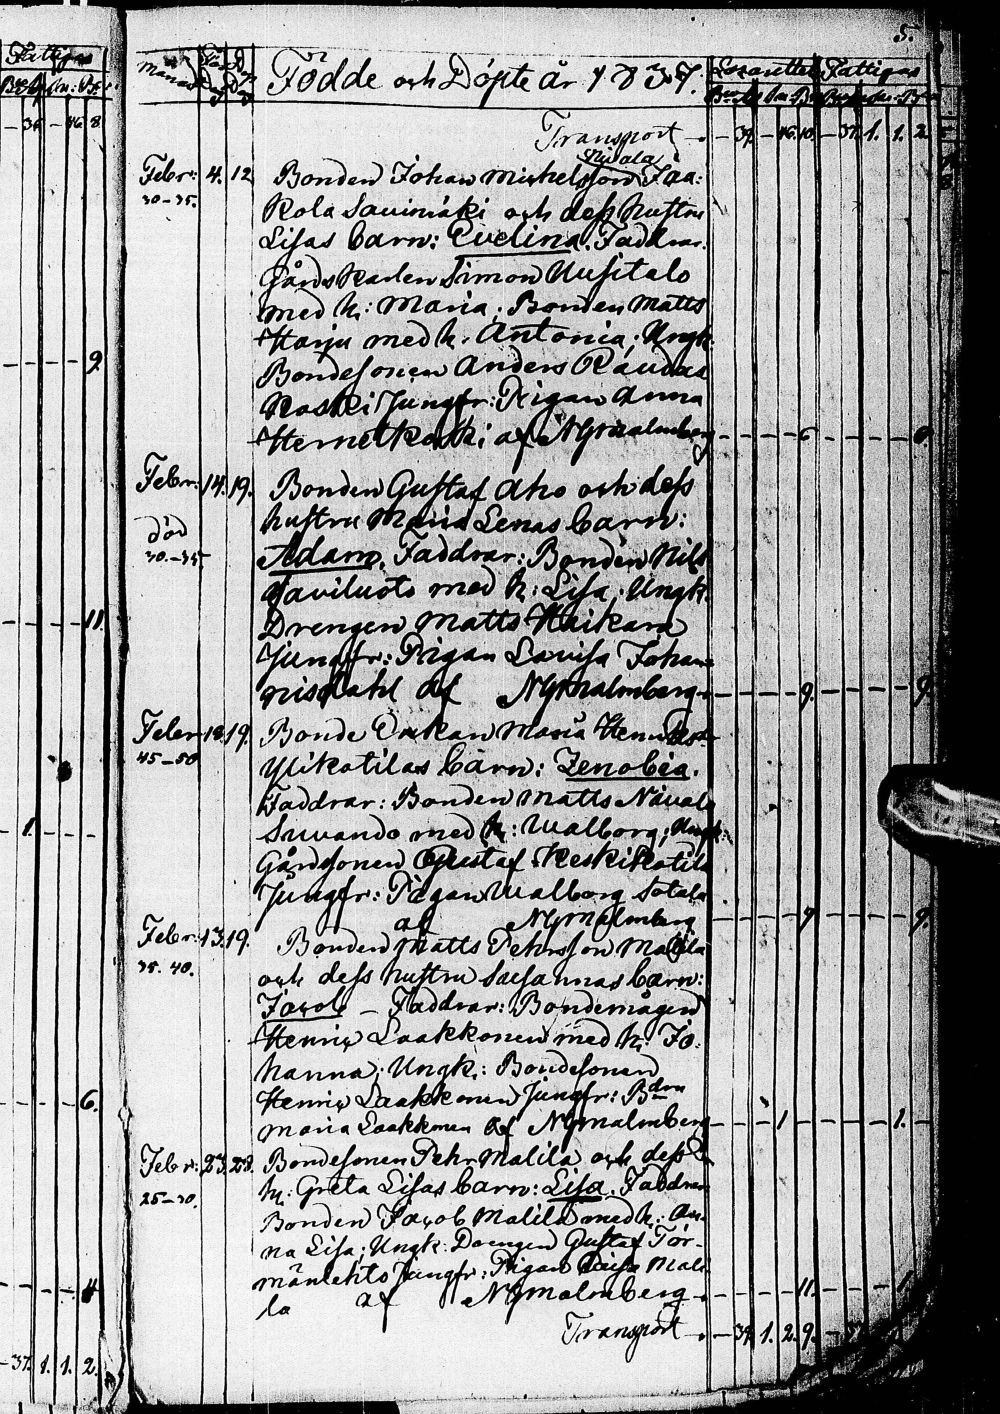 5.
Fattigas
Månad
Födde och Döpte år 1837.
Lazarettet Fattigas
Transport - 39. - 16. 10. - 37. 1. 1. 2.
Nivala
Febr: 4. 12 Bonden Johan Michelsson Jaa:
30-35. kola Savimäki och dess hustru
Lisas barn: Evelina. Faddrar:
Gårdskarlen Simon Uusitalo
med h: Maria; Bonden Matts
Harju med h. Antonia; Ungk:
Bondesonen Anders Raudas
koski Jungfr: Pigan Anna
Hernetkoski af NGmalmberg
Febr: 14. 19. Bonden Gustaf Aho och dess
död hustru Maria Lenas barn:
30.-35 Adam. Faddrar: Bonden Nils
Saviluoto med h: Lisa; Ungk:
Drengen Matts Haikara
Jungfr: Pigan Lovisa Johan-
nisdahl af NGmalmberg 9. 9.
Febr 18. 19. Bonde Enkan Maria Henriksdr
45-50 Ylikotilas barn: Zenobia.
Faddrar: Bonden Matts Nivala
Suvando med h: Walborg; Ungk:
Gårdsonen Gustaf Keskikotila
Jungfr: Pigan Walborg Sotala
af NGmalmberg
Febr: 13. 19. Bonden Matts Pehrsson Malila
35. 40. och dess hustru Susannas barn:
Jacob - Faddrar: Bondemågen
Henric Laakkonen med h: Jo-
hanna; Ungk: Bondesonen
Henric Laakkonen Jungfr: Bdrn
Maria Laakkonen af NGmalmberg 1. 1.
Febr: 23. 28. Bondesonen Pehr Malila och dess
25-30. h: Greta Lisas barn: Lisa. Faddrar
Bonden Jacob Malila med h: An-
na Lisa; Ungk: Drengen Gustaf Tör-
mänlehto Jungfr: Pigan Caisa Mali
la af NGmalmberg 11. 1.
Transport - 39. 1. 2. 9.
- 36. - 16 8
9.
11.
1.
6.
4.
- 37. 1. 1. 2.